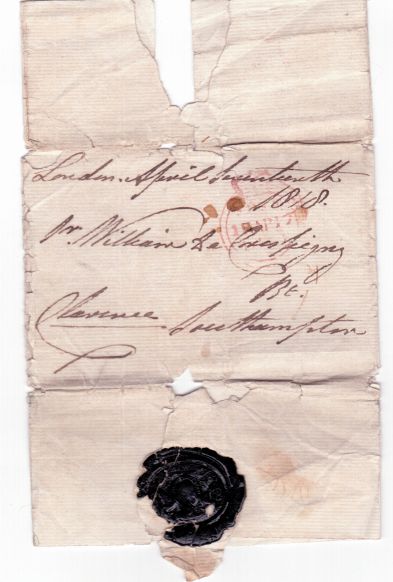 London. April Seventeenth
1818.
AP 17
Sr. William De Crespigny
Bt.
Clarence Southampton